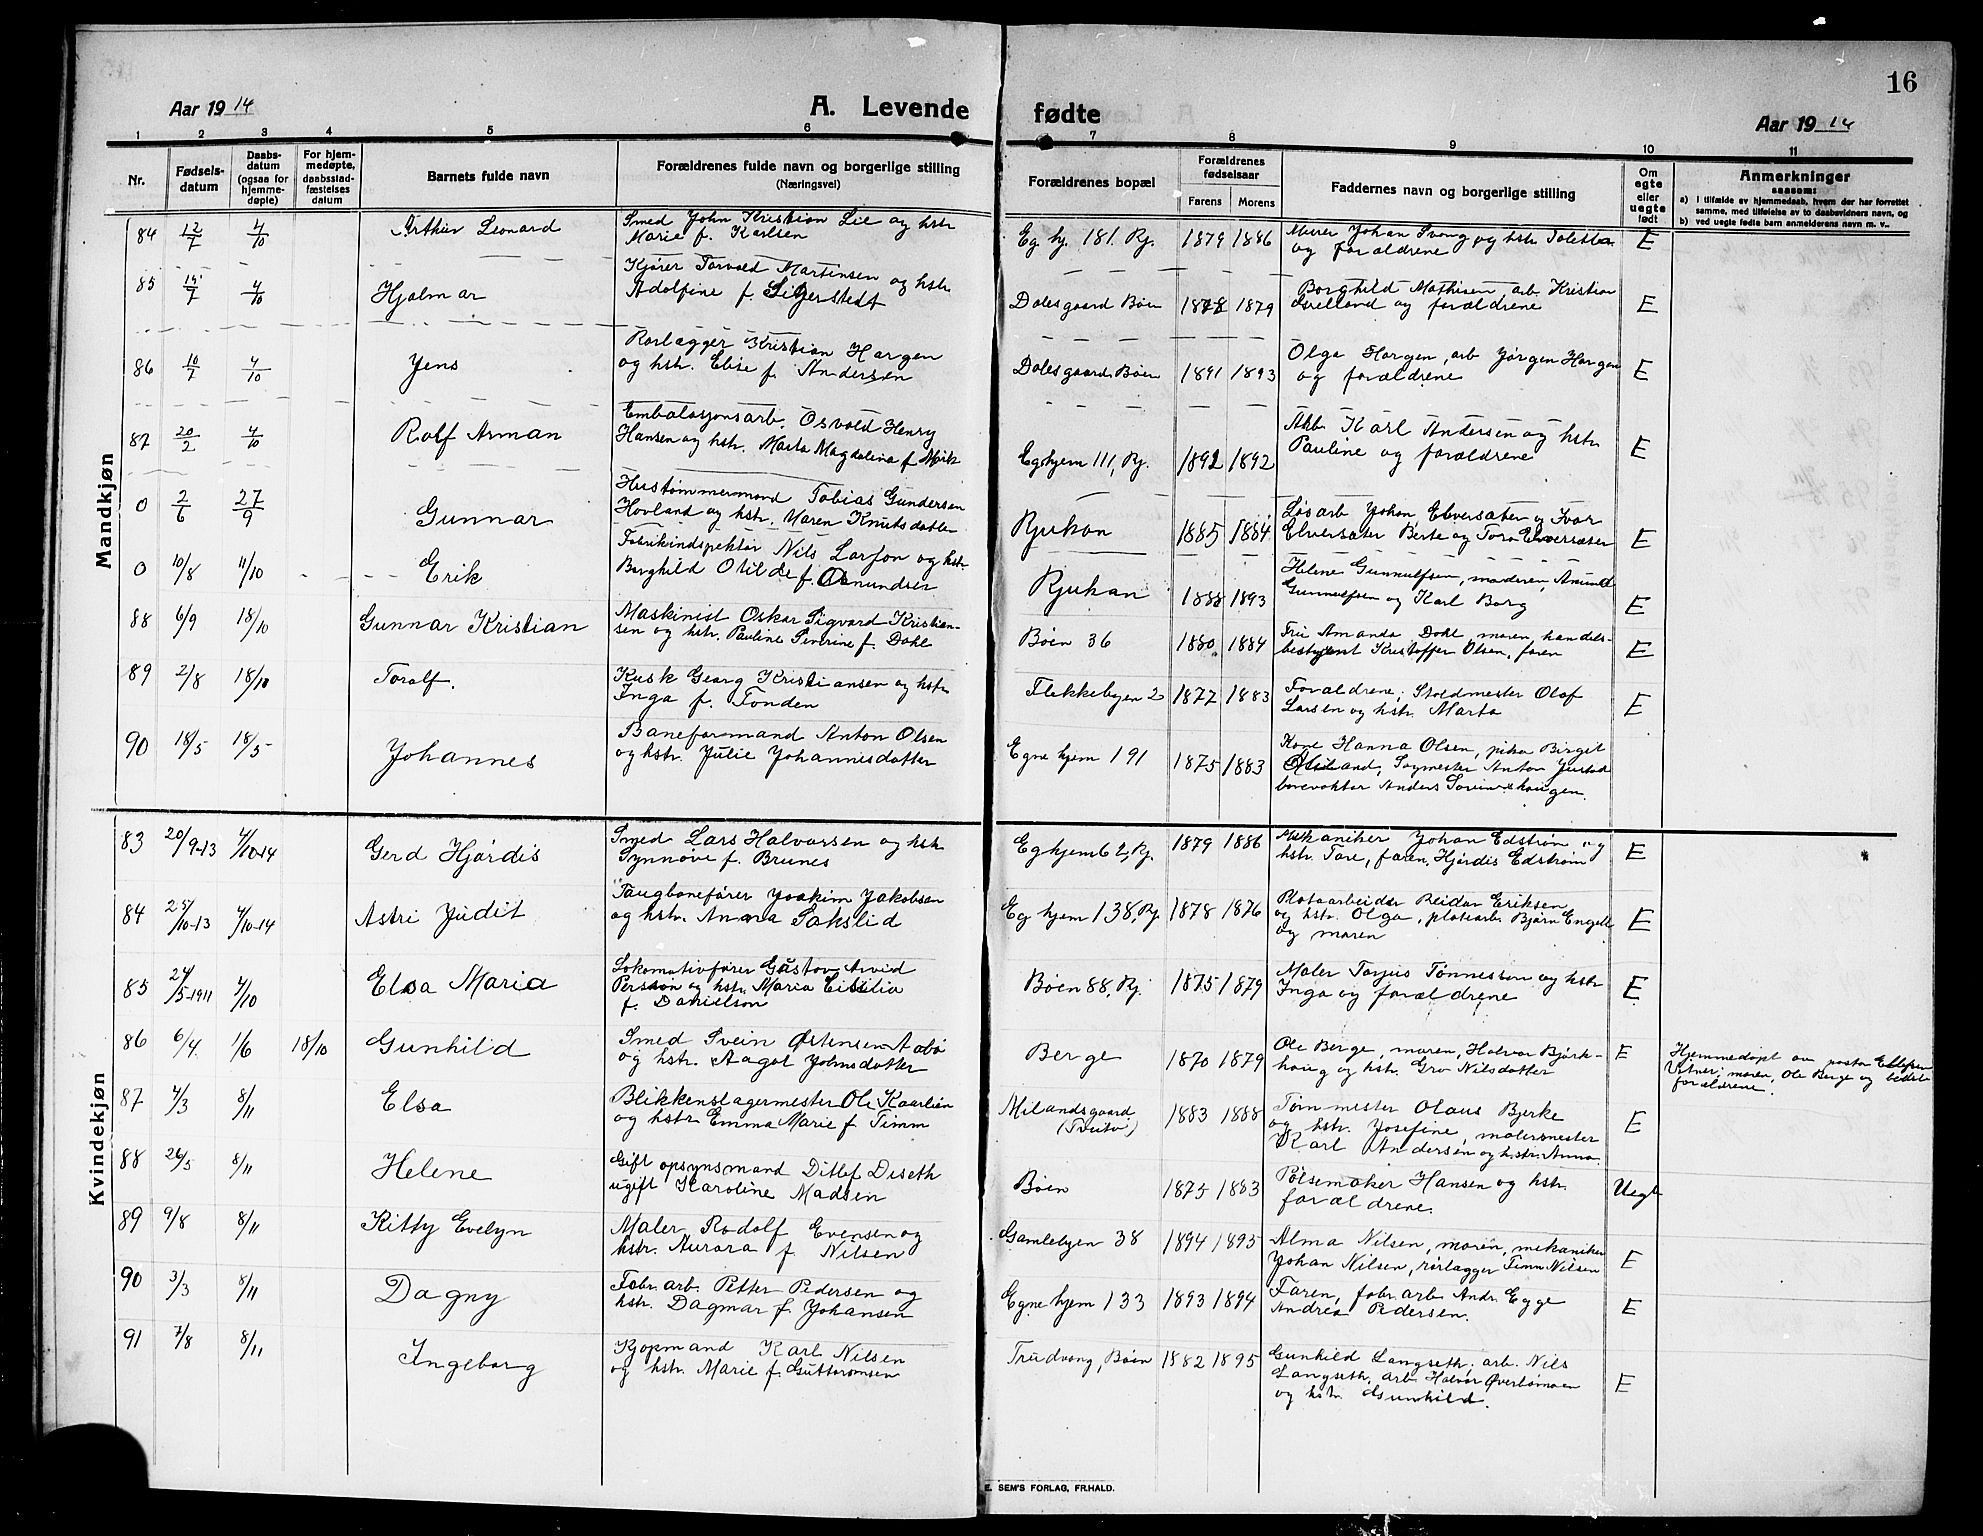 16
Aar 1914
A. Levende fødte
Aar 1914
1 2 3 4 5 6 7 8 9 10 11
Nr.
Fødsels-
datum
Daabs-
datum
(ogsaa for
hjemme-
døpte)
For hjem-
medøpte,
daabsstad-
fæstelses
datum
Barnets fulde navn
Forældrenes fulde navn og borgerlige stilling
(Næringsvei)
Forældrenes bopæl
Forældrenes
fødselsaar
Farens Morens
Faddernes navn og borgerlige stilling
Om
egte
eller
uegte
født
Anmerkninger
saasom:
a) i tilfælde av hjemmedaab, hvem der har forrettet
samme, med tilføielse av to daabsvidners navn, og
b) ved uegte fødte barn anmelderens navn m. v..
Mandkjøn
84 12/7 4/10 Arthur Leonard
Smed John Kristian Lie og hstr
Marie f. Karlsen
Eg. hj. 181. Rj. 1879 1886
Murer Johan og hstr
og forældrene
E
85 15/7 4/10 Hjalmar
Kjører Torvald Martinsen og hstr
Adolfine f. Sigerstedt
Dalesgaard Bøen 1878 1879
Borghild Mathisen arb. Kristian
og forældrene
E
86 10/7 4/10 Jens
Rørlægger Kristian Hargen
og hstr. Elise f. Andersen
Dalesgaard Bøen 1891 1893
Olga Hargen, arb Jørgen Hargen
og forældrene
E
87 20/2 4/10 Rolf Arman
Embalasjonsarb. Osvald Henry
Hansen og hstr. Marta Magdalina f.
Eg hjem 111, Rj. 1892 1892
Arb. Karl Andersen og hstr
Pauline og forældrene
E
0 2/6 27/9 Gunnar
Hustømmermand Tobias Gundersen
Hovland og hstr. Maren Knutsdatter
Rjukan 1885 1884
Løsarb Johan Elversæter og Ivar
Elversæter Berte og Tora Elversæter
E
0 10/8 11/10 Erik
Fabrikindspektør Nils Larson og hstr.
Borghild Otilde f.
Rjukan 1888 1893
Helene Gunnulfsen, moderen, Amund
Gunnulfsen og Karl Borg
E
88 6/9 18/10 Gunnar Kristian
Maskinist Oskar Sigvard Kristian-
sen og hstr. Pauline f. Dahl
Bøen 36 1880 1884
Fru Amanda Dahl, moren, handels-
bestyrer Kristoffer Olsen, faren
E
89 2/8 18/10 Toralf.
Kusk Georg Kristiansen og hstr
Inga f. Tonden
Flekkebyen 2 1877 1883
Forældrene, Stoldmester Olaf
Larsen og hstr. Marta
E
90 18/5 18/5 Johannes
Baneformand Anton Olsen
og hstr. Julie Johannesdatter
Egne hjem 191 1875 1883
Kone Hanna Olsen, pike Birgit
Anton
Anders
Kvindekjøn
83 20/9-13 4/10-14 Gerd Hjørdis
Smed Lars Halvorsen og hstr
Synnøve f. Brunes
Eg hjem 62, Rj. 1879 1886
Mekaniker Johan Edstrøm og
hstr. Tore, faren, Hjørdis Edstrøm
E
84 25/10-13 4/10-14 Astri Judit
Taugbanefører Joakim Jakobsen
og hstr. Anna Sakslid
Eg hjem 138, Rj. 1878 1876
Platearbeider Reidar Eriksen
og hstr. Olga, platearb. Bjørn Engell
og moren
E
85 24/5-1911 4/10 Elsa Maria
Lokomotivfører Gustov Arvid
Persson og hstr. Maria
f. Danielson
Bøen 88, Rj. 1875 1879
Maler Tarjus Tønnesson og hstr
Inga og forældrene
E
86 6/4 1/6 18/10 Gunhild
Smed Svein Østensen Aabø
og hstr. Aagot Johnsdatter
Berge 1870 1879
Ole Berge, moren, Halvor Bjørk-
haug og hstr. Gro Nilsdatter
E
Hjemmedøpt av pastor Ellefsen
Vitner; moren, Ole Berge og
forældrene.
87 4/3 8/11 Elsa
Blikkenslagermester Ole Kaarlien
og hstr Emma Marie f. Timm
Milandsgaard
(Tveito) 1883 1888
Tømmester Olaus Bjerke
og hstr. Josefine, malermester
Karl Andersen og hstr. Anna.
E
88 26/5 8/11 Helene
Gift opsynsmand Ditlef Diseth
ugift Karoline Madsen
Bøen 1875 1883
Pølsemaker Hansen og hstr.
forældrene.
Uegt
89 9/8 8/11 Kitty Evelyn
Maler Rodolf Evensen og
hstr. Aurora f. Nilsen
Gamlebyen 38 1894 1895
Alma Nilsen, moren, mekaniker
Johan Nilsen, rørlægger Timm Nilsen
E
90 3/3 8/11 Dagny
Fabr. arb. Petter Pedersen og
hstr. Dagmar f. Johansen
Egne hjem 133 1893 1894
Faren, fabr. arb. Andr. Egge
Andrea Pedersen.
E
91 7/8 8/11 Ingeborg
Kjøpmand Karl Nilsen
og hstr. Marie f. Guttormsen
Trudvang, Bøen 1882 1895
Gunhild Langseth, arb. Nils
Langseth, arb. Halvor Øverbømoen
og hstr. Gunhild.
E
E. SEM'S FORLAG, FR.HALD.